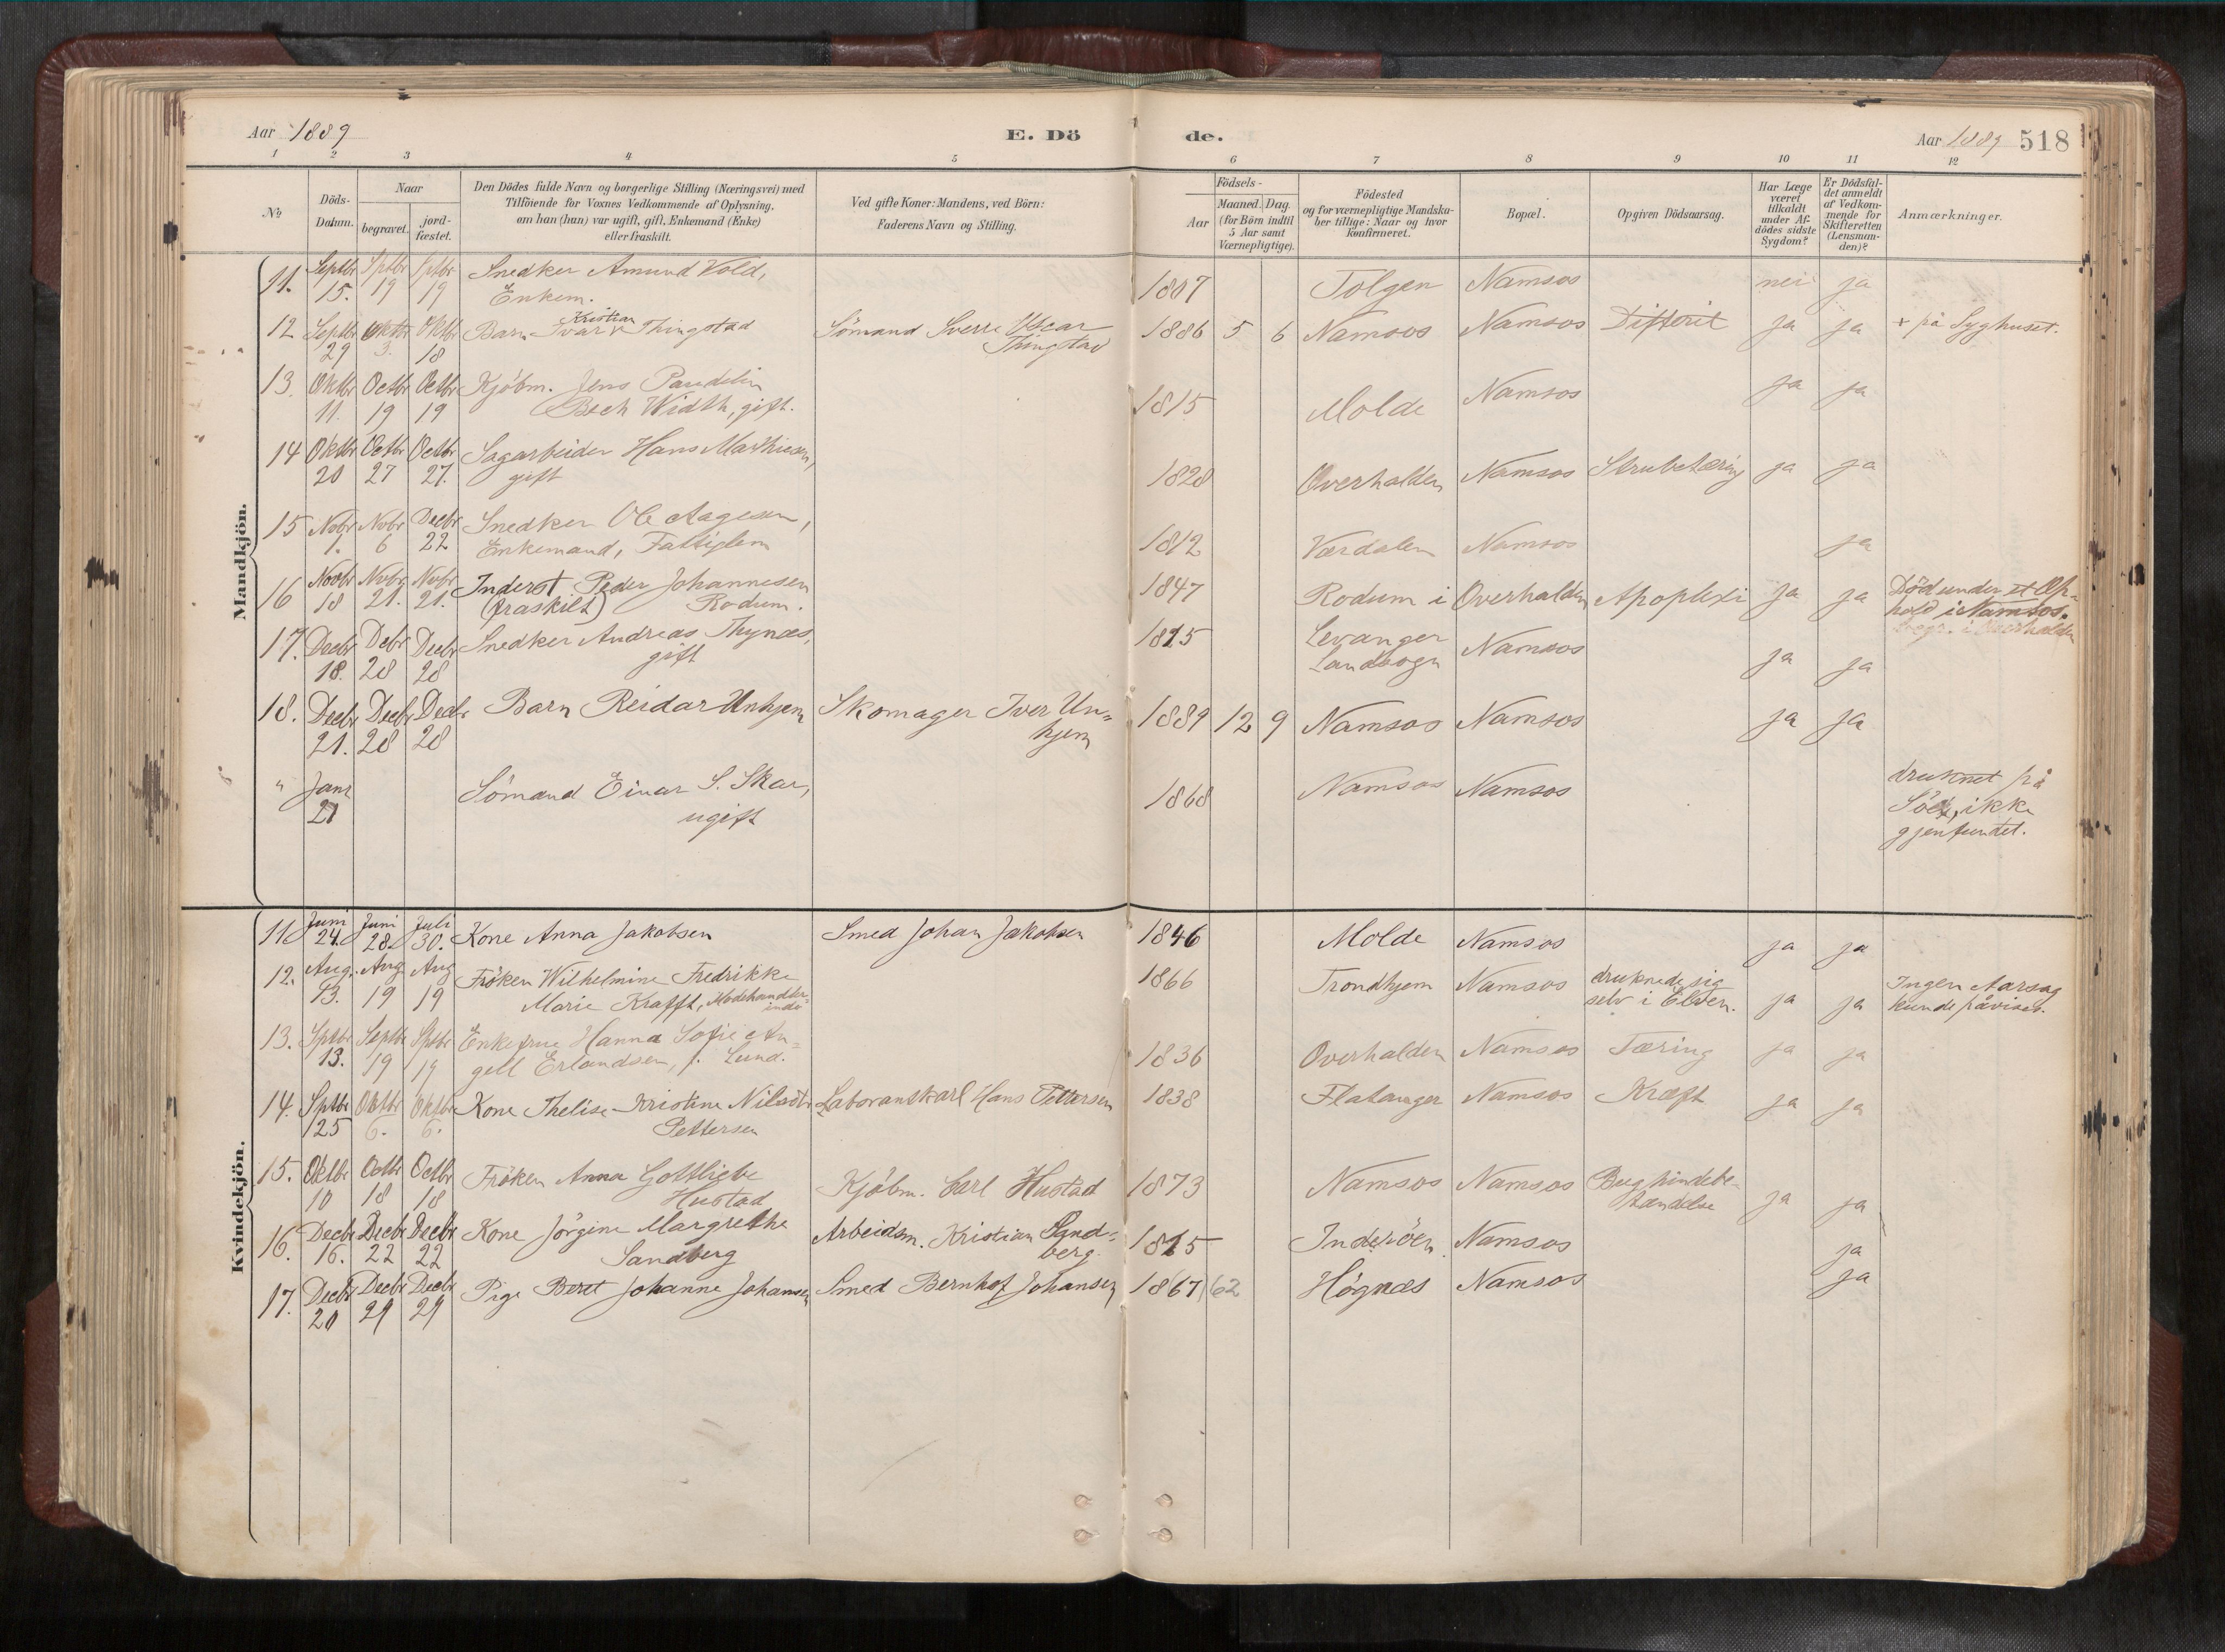 Aar 1889 E. Dö de. Aar 1889 518
1 2 3 4 5 6 7 8 9 10 11 12
No
Döds-
Datum.
Naar
begravet.
jord-
fæstet.
Den Dödes fulde Navn og borgerlige Stilling (Næringsvei) med
Tilföiende for Voxnes Vedkommende af Oplysning,
om han (hun) var ugift, gift, Enkemand (Enke)
eller fraskilt.
Ved gifte Koner: Mandens, ved Börn:
Faderens Navn og Stilling.
Födsels-
Aar
Maaned. Dag.
(for Börn indtil
5 Aar samt
Værnepligtige).
Födested
og for værnepligtige Mandska-
ber tillige: Naar og hvor
konfirmeret.
Bopæl.
Opgiven Dödsaarsag.
Har Læge
været
tilkaldt
under Af-
dödes sidste
Sygdom?
Er Dödsfal-
det anmeldt
af Vedkom-
mende for
Skifteretten
(Lensman-
den)?
Anmærkninger.
Mandkjön.
11. Septbr Sptbr Sptbr Snedker Amund Vold,
15. 19 19 Enkem. 1807 Tolgen Namsos nei ja
12 Septbr Oktbr Oktbr Barn Ivar Kristian Thingstad Sömand Sverre Oscar 1886 5 6 Namsos Namsos Difterit ja ja + på Syghuset.
29 3. 18 Thingstad
13. Oktbr Octbr Octbr Kjöbm. Jens Paudelin Namsos ja ja
11. 19 19 Bech Width, gift. 1815 Molde
14 Oktbr Octbr Octbr Sagarbeider Hans Mathiesen,
20 27 27. gift 1828 Overhalden Namsos Strubetæring ja ja
15 Novbr Novbr Decbr Snedker Ole Aagesen,
1. 6 22 Enkemand, Fattiglem 1812 Værdalen Namsos ja
16 Novbr Novbr Novbr Inderst Peder Johannesen 1847 Rodum i Overhalden Apoplexi ja ja Död under et Op-
18 21. 21. (fraskilt) Rodum. hold i Namsos.
begr. i Overhalden
17. Decbr Debr Decbr Snedker Andreas Thynæs, 1815 Levanger Namsos
18. 28 28 gift Landsogn ja ja
18. Decbr Decbr Decbr Barn Reidar Unhjem Skomager Iver Un- 1889 12 9 Namsos Namsos ja ja
21. 28 28 hjem
" Janr Sömand Einar S. Skar, 1868 Namsos Namsos druknet på
21 ugift Söen, ikke
gjenfundet.
Kvindekjön.
11 Juni Juni Juli Kone Anna Jakobsen Smed Johan Jakobsen 1846 Molde Namsos ja ja
24. 28. 30.
12. Aug. Aug Aug Fröken Wilhelmine Fredrikke 1866 Trondhjem Namsos druknede sig Ingen Aarsag
13. 19 19 Marie Krafft, Modehandler- selv i Elven. ja ja kunde påvises.
inde
13. Sptbr Septbr Sptbr Enkefrue Hanna Sofie An-
13. 19 19 gell Erlandsen, f. Lund. 1836 Overhalden Namsos Tæring ja ja
14. Sptbr Oktbr Oktbr Kone Thelise Kristine Nilsdtr Laborantkarl Hans Pettersen 1838 Flatanger Namsos Kræft ja ja
25 6. 6. Pettersen
15. Oktbr Octbr Octbr Fröken Anna Gottliebe Kjöbm. Carl Hustad 1873 Namsos Namsos Bughindebe-
10 18 18 Hustad tændelse ja ja
16. Decbr Decbr Decbr Kone Jörgine Margrethe Arbeidsm. Kristian Sand- 1815 Inderöen Namsos ja
16. 22 22 Sandberg berg.
17. Decbr Decbr Decbr Pige Beret Johanne Johansen Smed Bernhof Johansen 1867 62 Högnæs Namsos ja
20 29 29